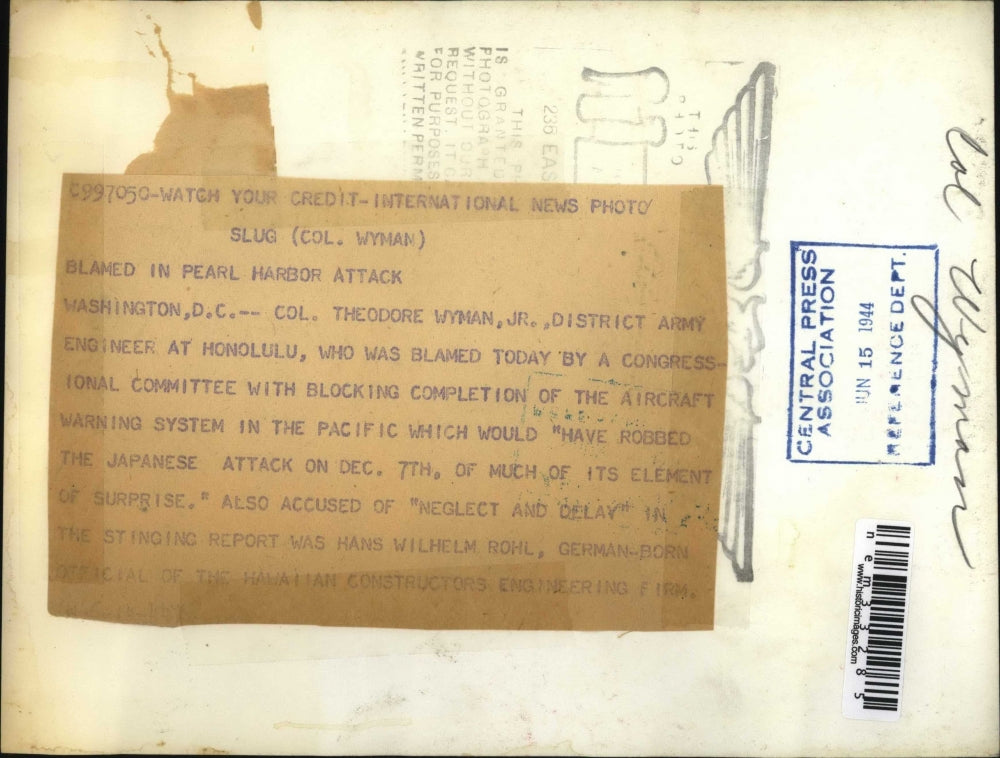 C997050-WATCH YOUR CREDIT-INTERNATIONAL NEWS PHOTO
SLUG (COL. WYMAN)
BLAMED IN PEARL HARBOR ATTACK
WASHINGTON,D.C.-- COL. THEODORE WYMAN,JR.,DISTRICT ARMY
ENGINEER AT HONOLULU, WHO WAS BLAMED TODAY BY A CONGRESS-
IONAL COMMITTEE WITH BLOCKING COMPLETION OF THE AIRCRAFT
WARNING SYSTEM IN THE PACIFIC WHICH WOULD "HAVE ROBBED
THE JAPANESE ATTACK ON DEC. 7TH, OF MUCH OF ITS ELEMENT
OF SURPRISE." ALSO ACCUSED OF "NEGLECT AND DELAY" IN
THE STINGING REPORT WAS HANS WILHELM ROHL, GERMAN-BORN
OFFICIAL OF THE HAWAIIAN CONSTRUCTORS ENGINEERING FIRM.
THIS
235 EAS
IS GRANTED
PHOTOGRAPH
WITHOUT OUR
REQUEST. IT
FOR PURPOSES
WRITTEN PERM
CENTRAL PRESS
ASSOCIATION
JUN 15 1944
REFERENCE DEPT.
Col Wyman
www.historicimages.com
nem33285